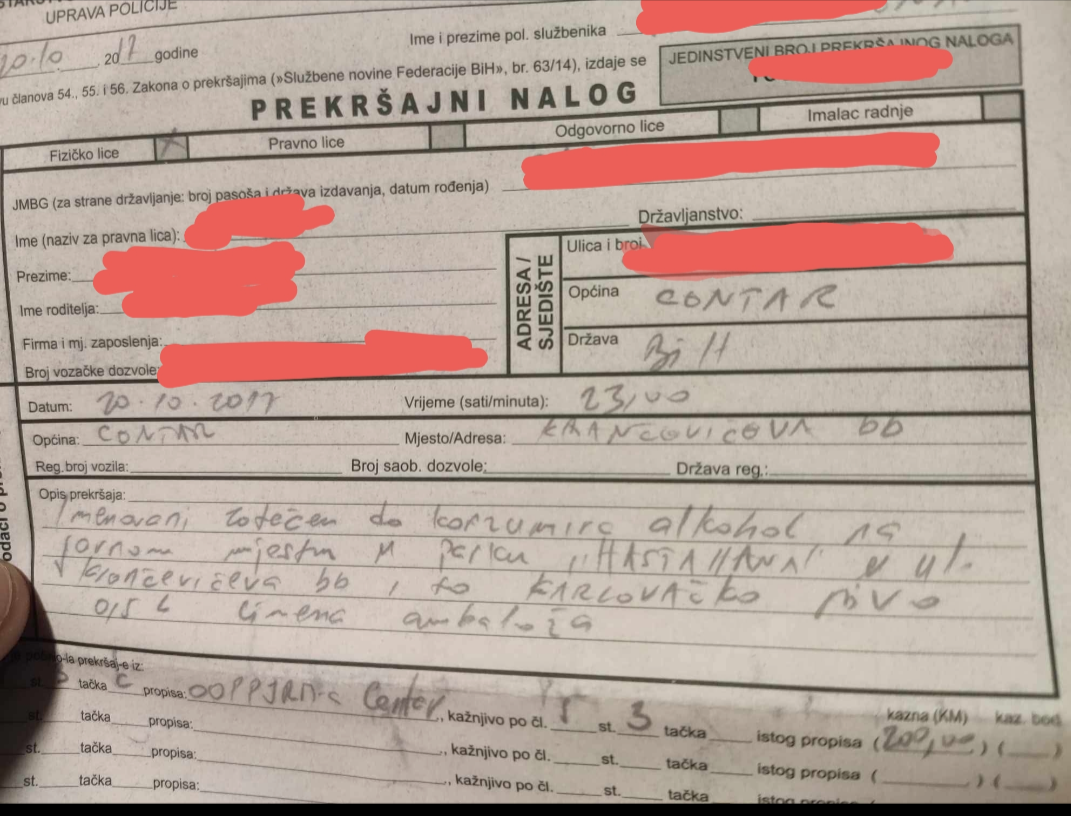 UPRAVA POLICIJE
20.10 2017 godine
Ime i prezime pol. službenika
JEDINSTVENI BROJ PREKRŠAJNOG NALOGA
članova 54., 55. i 56. Zakona o prekršajima (»Službene novine Federacije BiH«, br. 63/14), izdaje se
PREKRŠAJNI NALOG
Fizičko lice X Pravno lice Odgovorno lice Imalac radnje
JMBG (za strane državljanje: broj pasoša i država izdavanja, datum rođenja)
Ime (naziv za pravna lica): Državljanstvo:
Prezime:
Ime roditelja:
Firma i mj. zaposlenja:
Broj vozačke dozvole:
ADRESA / SJEDIŠTE
Ulica i broj
Općina CENTAR
Država BiH
Datum: 20.10.2017 Vrijeme (sati/minuta): 23,00
Općina: CENTAR Mjesto/Adresa: bb
Reg.broj vozila: Broj saob. dozvole: Država reg.:
Opis prekršaja:
Imenovani zatečen da konzumira alkohol na
javnom mjestu u parku "HASTAHANA" u ul.
bb, to KARLOVAČKO pivo
0,5 L limena ambalaža
-la prekršaj-e iz:
st. 3 tačka C propisa: Centar, kažnjivo po čl. st. 3 tačka istog propisa (200,00) ( )
kazna (KM) kaz. bod
st. tačka propisa: , kažnjivo po čl. st. tačka istog propisa ( ) ( )
st. tačka propisa: , kažnjivo po čl. st. tačka istog propisa (
st. tačka propisa: , kažnjivo po čl. st. tačka istog propisa